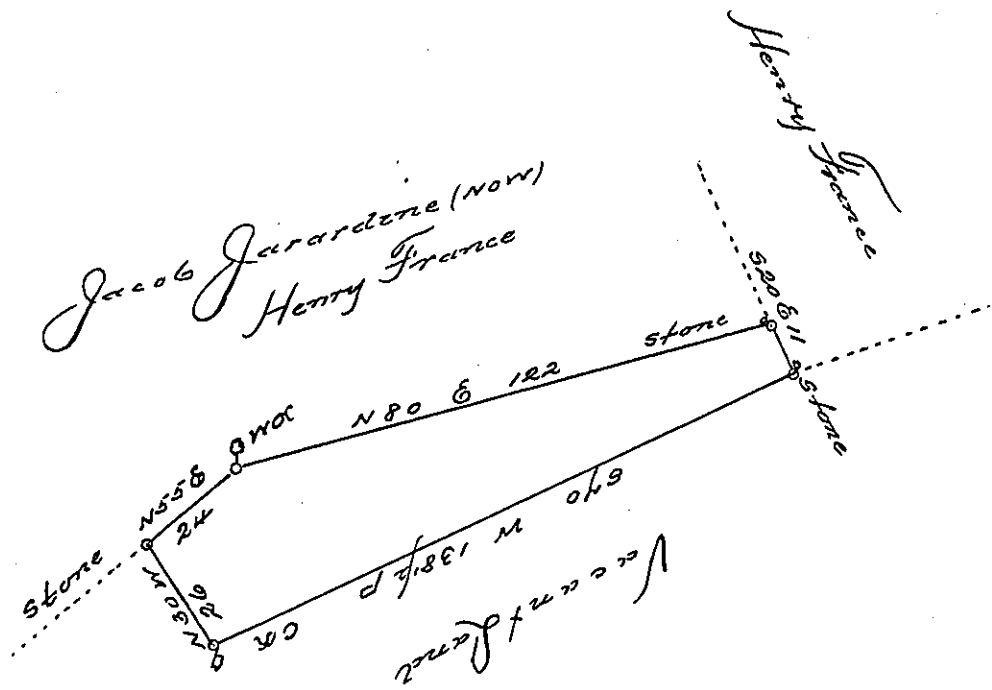 Henry France
Jacob Jarardine (NOW)
Henry France
S20 E 11
stone
stone
N 80 E 122
WO
N55E
24
stone
N30W
26
CO
S70 W 138½ p
Vacant Land